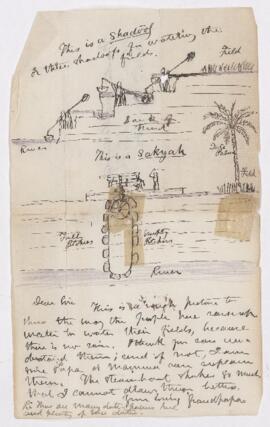 This is a Shadoof
& three Shadoofs for watering the
fields.
Field
Bank of
Mud
River
This is a Sakyah
Date
Palm
Field
Full
Pitchers
Empty
Pitchers
River
Dear Eric This is a rough picture to
show the way the people here raise up
water to water their fields, because
there is no rain. I think you can un-
derstand them; and if not, I am
sure Papa or Mamma can explain
them. The steamboat shakes so much
that I cannot draw them better.
Your loving Grandpapa
There are many date palms here
and plenty of date